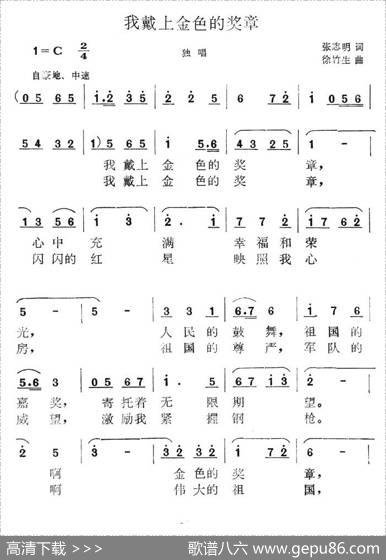 我戴上金色的奖章
1=C 2/4
独唱
张志明 词
徐竹生 曲
自豪地、中速
(0 5 6 5 | 1·2 3 5 | 2 5 2 5 | 6 7 2 | 1 0 5 6 |
5 4 3 2 | 1) 5 6 5 | 1 5·6 | 5 3 2 3 | 1 - |
我戴上 金 色的 奖 章，
我戴上 金 色的 奖 章，
1 3 5 6 | 1 3 | 2 · 1 | 7 7 2 | 1 7 6 2 |
心中 充 满 幸 福和 荣
闪闪的 红 星 映 照我 心
5 - | 5 - | 3 3 1 | 6·7 7 6 | 1 7 6 |
光， 人民的 鼓 舞，祖国的
房， 祖国的 尊 严，军队的
5·6 3 | 0 5 6 7 | 1 · 5 | 6 7 1 3 | 2 - |
嘉 奖， 寄托着 无 限 期 望。
威 望， 激励我 紧 握 钢 枪。
2 5 | 3 - | 3 3 2 | 1 3 2 3 2 | 1 6 5 |
啊 金色的 奖 章，
啊 伟大的 祖 国，
高清下载 >>>
歌谱八六 www.gepu86.com